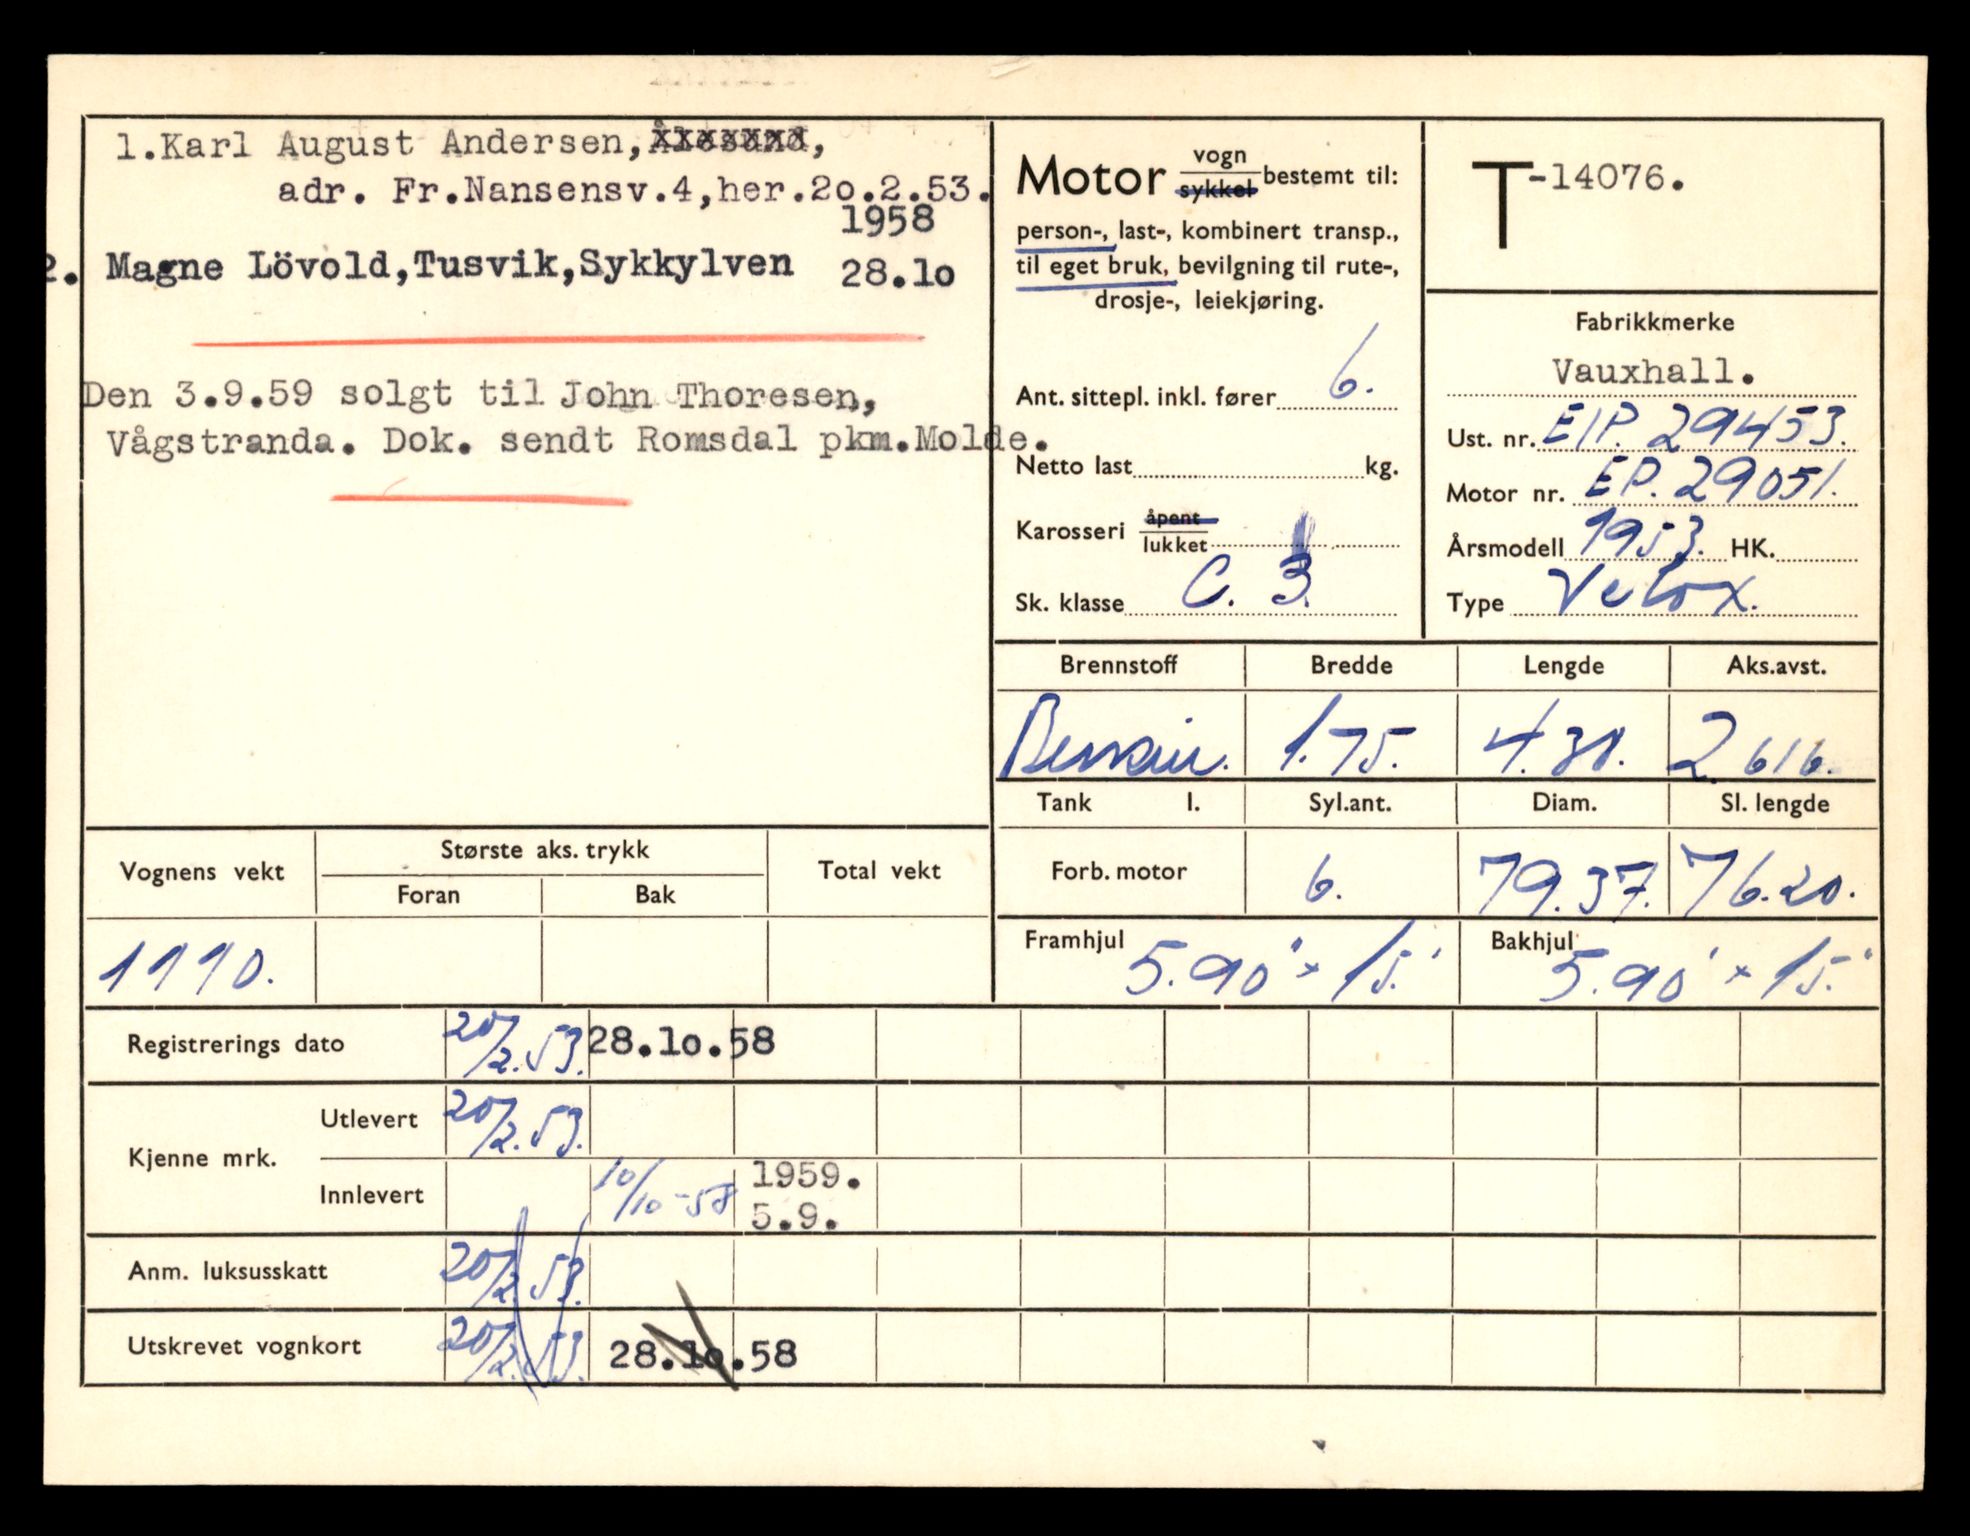 1.Karl August Andersen,Ålesund,
adr. Fr.Nansensv.4,her.2o.2.53.
1958
2. Magne Lövold,Tusvik,Sykkylven 28.1o
Den 3.9.59 solgt til John Thoresen,
Vågstranda. Dok. sendt Romsdal pkm.Molde.
Motor vogn sykkel bestemt til:
person-, last-, kombinert transp.,
til eget bruk, bevilgning til rute-,
drosje-, leiekjøring.
Ant. sittepl. inkl. fører 6.
Netto last kg.
Karosseri åpent lukket
Sk. klasse C. 3.
T-14076.
Fabrikkmerke
Vauxhall.
Ust. nr. EIP. 29453.
Motor nr. EP. 29051.
Årsmodell 1953. HK.
Type Velox.
Brennstoff Bredde Lengde Aks.avst.
Bensin. 1.75. 4.38. 2.616.
Tank l. Syl.ant. Diam. Sl. lengde
Forb. motor 6. 79.37. 76.20.
Framhjul 5.90" x 15." Bakhjul 5.90" x 15."
Vognens vekt Største aks. trykk Total vekt
Foran Bak
1110.
Registrerings dato 20/2.53. 28.1o.58
Kjenne mrk. Utlevert 20/2.53.
Innlevert 10/10-58 1959.
5.9.
Anm. luksusskatt 20/2.53.
Utskrevet vognkort 20/2.53. 28.1o.58